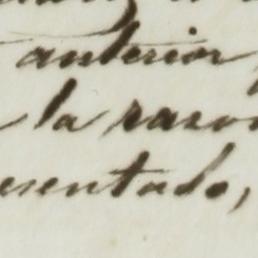 anterior
la razon
esentado,